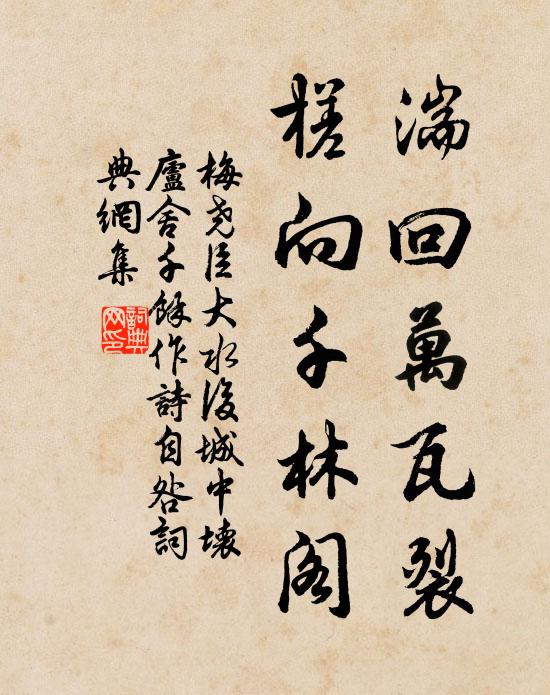 湍回萬瓦裂
槎向千林閣
梅堯臣大水後城中壞
廬舍千餘作詩自咎詞
典網集
詞典
网印